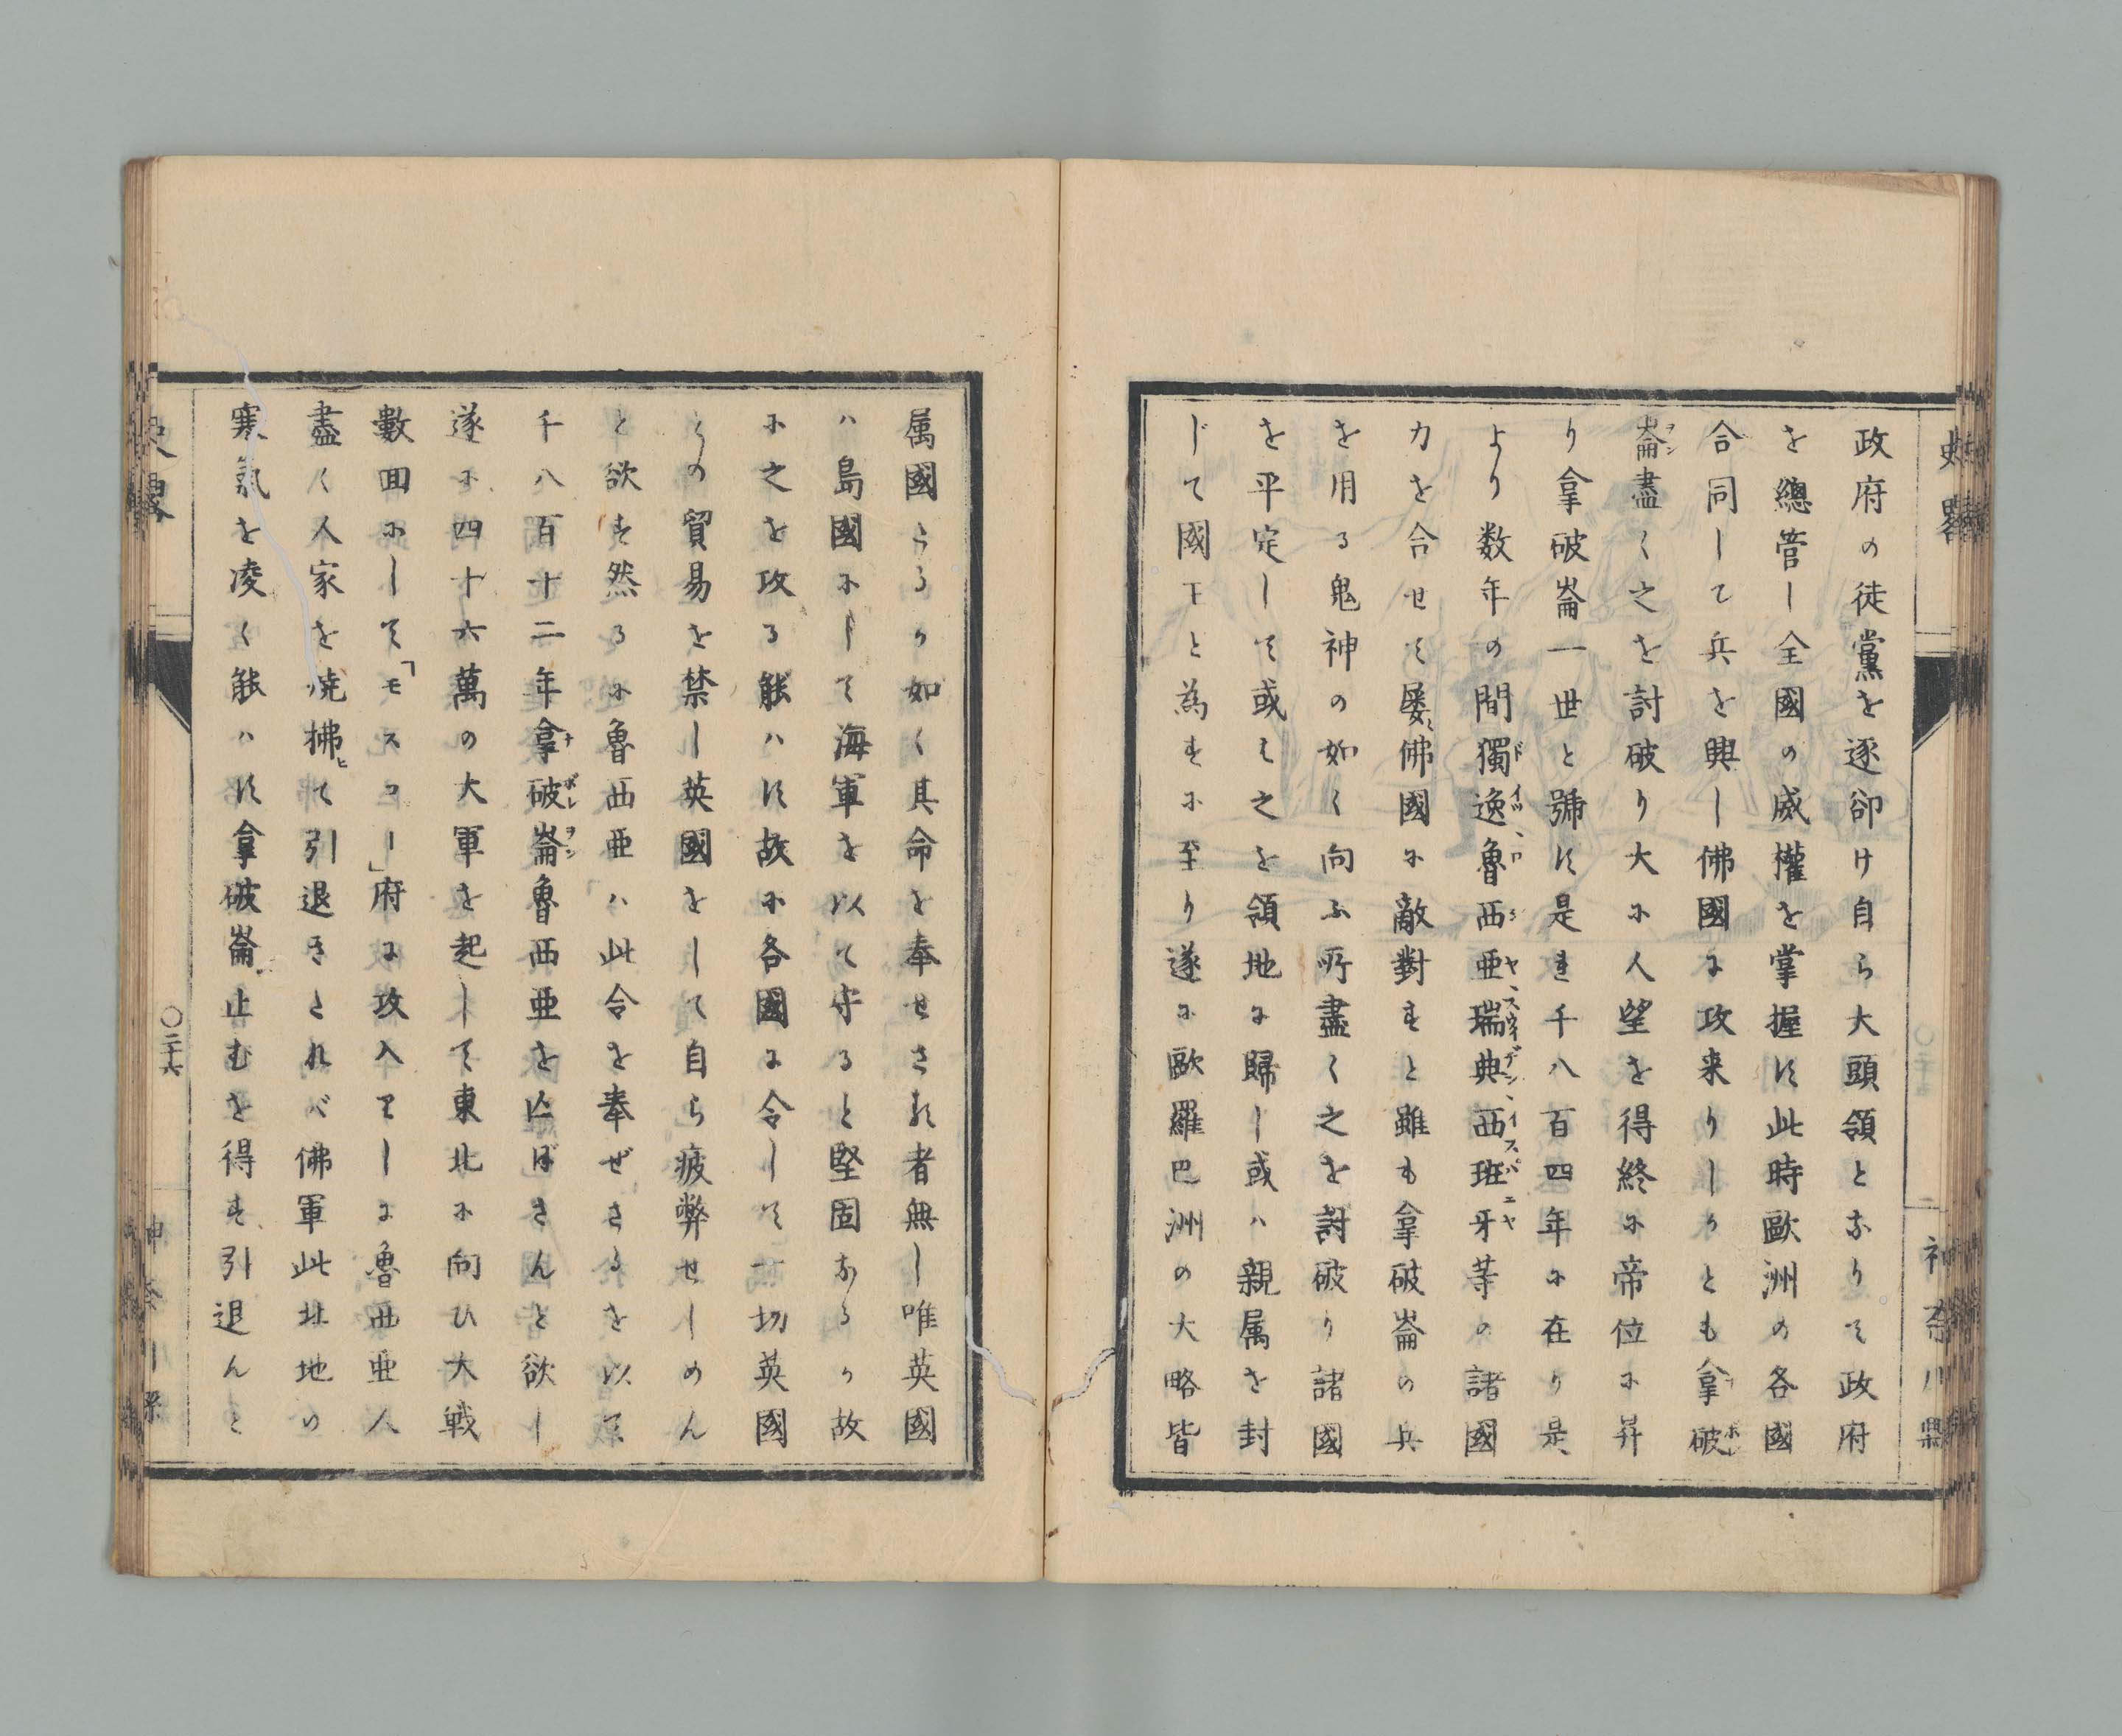 史略
二
神奈川縣
政府の徒黨を逐卻け自ら大頭領となりて政府
を總管し全國の威權を掌握す此時歐洲の各國
合同して兵を興し佛國に攻来りしかとも拿破
崙盡く之を討破り大に人望を得終に帝位に昇
り拿破崙一世と號す是を千八百四年に在り是
より数年の間獨逸魯西亜瑞典西班牙等の諸國
力を合せて屡〻佛國に敵對すと雖も拿破崙の兵
を用る鬼神の如く向ふ所盡く之を討破り諸國
を平定して或は之を領地に歸し或ハ親属を封
じて國王と為すに至り遂に歐羅巴洲の大略皆
属國たるか如く其命を奉せさる者無し唯英國
ハ島國にして海軍を以て守ると堅固なるか故
に之を攻る能ハす故に各國に令して一切英國
との貿易を禁し英國をして自ら疲弊せしめん
と欲す然るに魯西亜ハ此令を奉ぜさるを以て
千八百十二年拿破崙魯西亜を亡ぼさんと欲し
遂に四十六萬の大軍を起して東北に向ひ大戦
數回にして「モスコー」府に攻入りしに魯西亜人
盡く人家を焼拂ヒて引退きたれバ佛軍此北地の
寒氣を凌く能ハす拿破崙止むを得す引退んと
〇二十六
史畧
神奈川縣